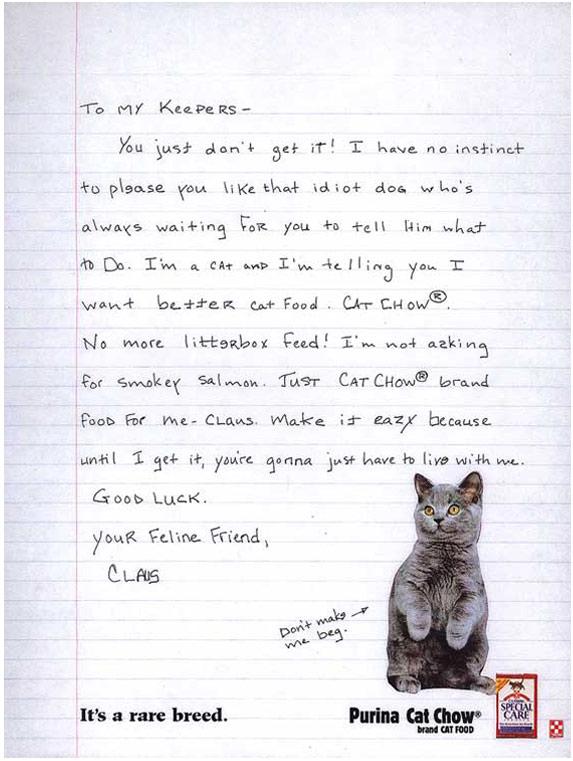 To MY KeePeRs -
You just don't get it! I have no instinct
to please you like that idiot dog who's
always waiting FoR you to tell Him what
to Do. I'm a CAt anD I'm telling you I
want betteR cat Food. CAT CHOW®.
No more litterbox feed! I'm not azking
for smokey salmon. JUST CAT CHOW® brand
FooD FoR me-CLAUS. Make it eazy because
until I get it, you're gonna just have to live with me.
GooD LUCK.
youR Feline Friend,
CLAUS
Don't make
me beg.
It's a rare breed.
Purina Cat Chow®
brand CAT FOOD
SPECIAL
CARE